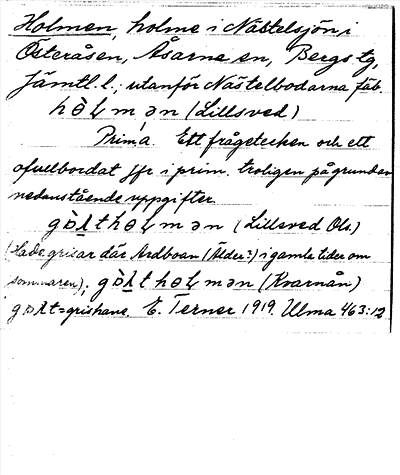 Holmen, holme i Nästelsjön i
Österåsen, Åsarne sn, Bergs tg,
Jämtl. l.; utanför Nästelbodarna fäb.
hòɬmən (Lillsved)
Prim. a. Ett frågetecken och ett
ofullbordat jfr i prim. troligen på grund av
nedanstående uppgifter.
gɔ̀ʟthoɬmən (Lillsved Ols.)
(Hade grisar där Ardboan (Ålder?) i gamla tider om
sommaren); gɔ̀ʟthoɬmən (Kvarnån)
gɔʟt = grishane. E. Terner 1919. Ulma 463:12